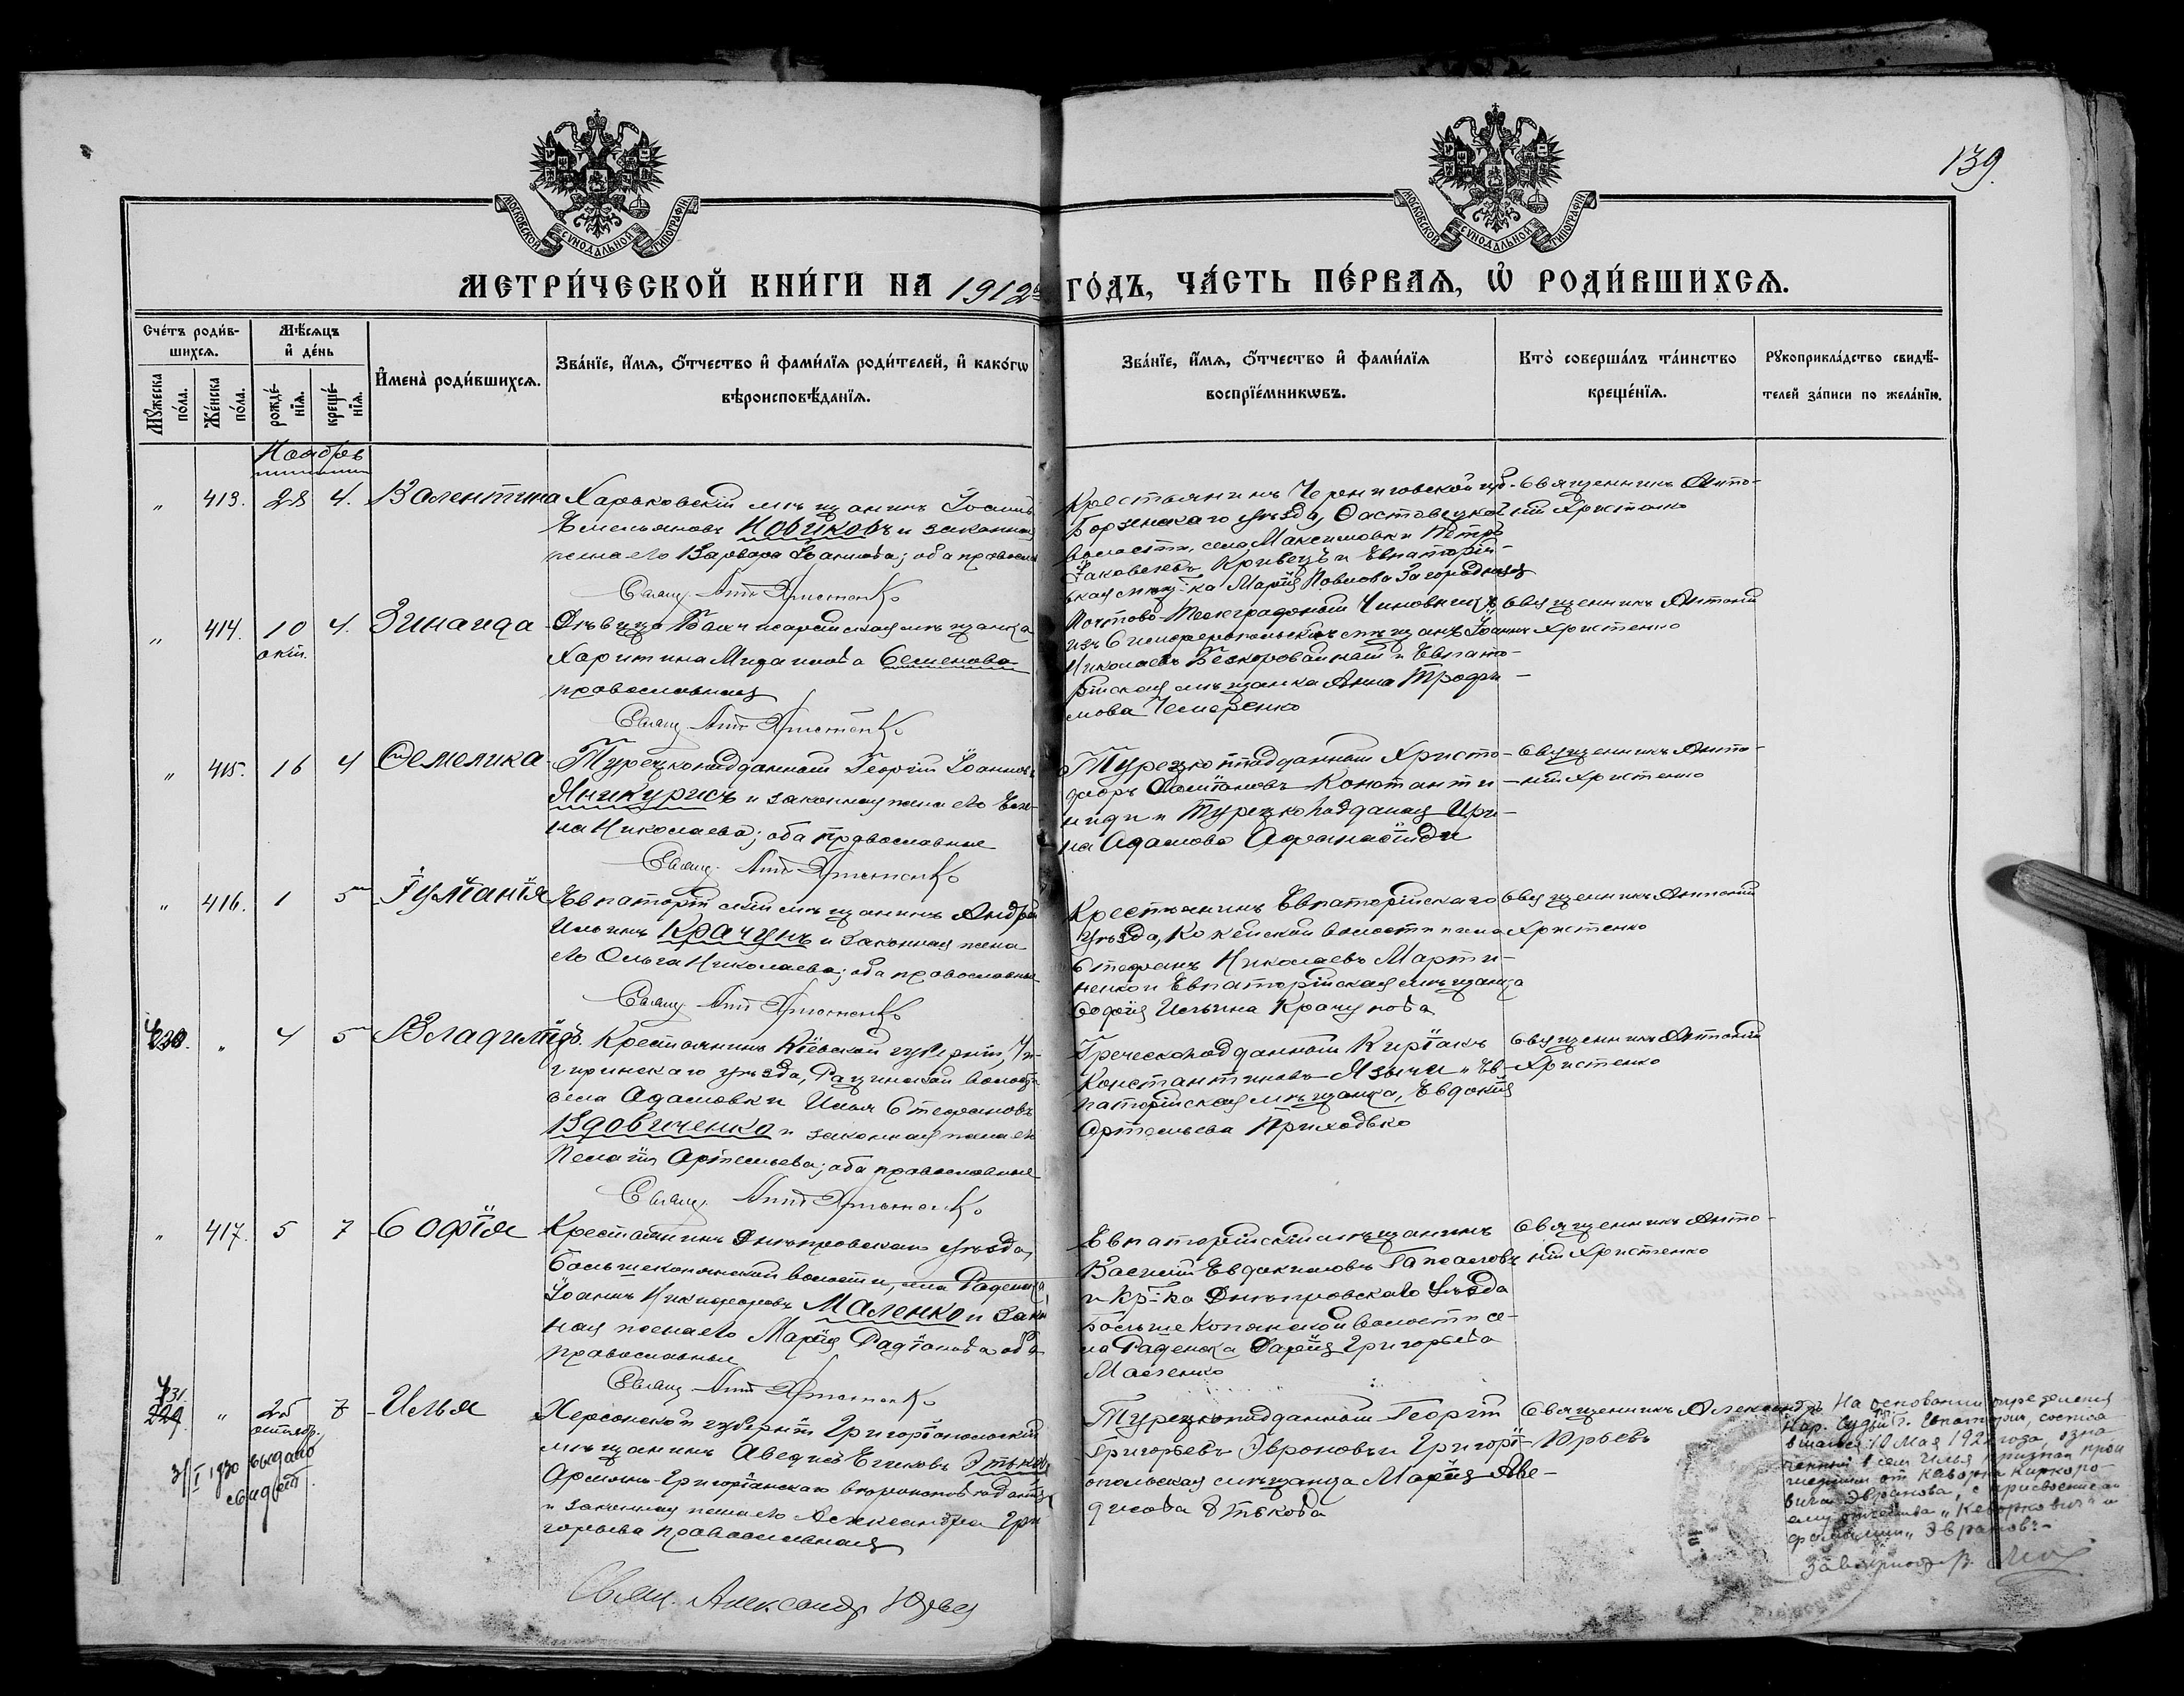 139.
МОСКОВСКОЙ СѴНОДАЛЬНОЙ ТИПОГРАФІИ
МОСКОВСКОЙ СѴНОДАЛЬНОЙ ТИПОГРАФІИ
МЕТРИ́ЧЕСКОЙ КНИ́ГИ НА 1912й ГО́ДЪ, ЧА́СТЬ ПЕ́РВАЯ, Ѡ҆ РОДИ́ВШИХСЯ.
Сче́тъ роди́в-
шихся.
Мѣ́сяцъ
и҆ де́нь
Мꙋ́жеска по́ла.
Же́нска по́ла.
рожде́-
нїя.
креще́-
нїя.
И҆мена̀ роди́вшихся.
Зва́нїе, и҆́мя, ѻ҆́тчество и҆ фами́лїя роди́телей, и҆ како́гѡ
вѣроисповѣ́данїя.
Зва́нїе, и҆́мя, ѻ҆́тчество и҆ фами́лїя
воспрїе́мникѡвъ.
Кто̀ соверша́лъ та́инство
креще́нїя.
Рꙋкоприкла́дство свидѣ́-
телей за́писи по жела́нїю.
Ноябрь
„ 413. 28 4. Валентина
Харьковскій мѣщанинъ Іоаннъ
Емельяновъ Новиковъ и законная
жена его Варвара Іоаннова; оба православ
Свящ. Ант. Христенко
Крестьянинъ Черниговской губ.
Борзенскаго уѣзда,
волости, села Максимовки Петръ
Яковлевъ Кривецъ и Евпаторій-
ская мѣщ-ка Марія Павлова Загородная
Священникъ Анто-
ній Христенко
„ 414. 10 4. Зинаида
окт.
Дѣвица Бахчисарайская мѣщанка
Харитина Михаилова Семенова
православная
Свящ. Ант. Христенко
Почтово-Телеграфный Чиновникъ,
изъ Симферопольскихъ мѣщанъ Іоаннъ
Николаевъ Бескоровайный и Евпато-
рійская мѣщанка Анна Трофи-
мова Чемеренко
Священникъ Антоній
Христенко
„ 415. 16 4 Семелика
Турецкоподданный Георгій Іоанновъ
Яникурисъ и законная жена его Еле-
на Николаева; оба православные
Свящ. Ант. Христенко
Турецкоподданный Христо-
форъ Константи-
ниди и Турецкоподданая Ири-
на Адамова Афанасіиди
Священникъ Анто-
ній Христенко
„ 416. 1 5 Іуліанія
Евпаторійскій мѣщанинъ Андрей
Ильинъ Крачунъ и законная жена
его Ольга Николаева; оба православные
Свящ. Ант. Христенко
Крестьянинъ Евпаторійскаго
уѣзда, волости
Стефанъ Николаевъ Марти-
ненко и Евпаторійская мѣщанка
Софія Ильина Крачунова
Священникъ Антоній
Христенко
„ 4 5 Владиміръ.
Крестьянинъ Кіевской губерніи, Чи-
гиринскаго уѣзда, волости
села Адамовки Илья Стефановъ
Вдовиченко и законная жена его
Пелагія Артемьева; оба православные
Свящ. Ант. Христенко
Греческоподданный Киріакъ
Константиновъ Язычи и Ев-
паторійская мѣщанка, Евдокія
Артемьева Приходько
Священникъ Антоній
Христенко
„ 417. 5 7 Софія
Крестьянинъ Днѣпровскаго уѣзда,
Большекопанской волости, села Раденска
Іоаннъ Никифоровъ Маленко и закон
ная жена его Марія Радіонова оба
православные
Свящ. Ант. Христенко
Евпаторійскій мѣщанинъ
Василій Евдокимовъ
и кр-ка Днѣпровскаго Уѣзда
Больше Копанской волости се-
ла Раденска Дарія Григорьева
Маленко
Священникъ Анто-
ній Христенко
229 „ 25 7 Илья
31/I 1930 выдано
свидет
Херсонской губерніи Григоріопольскій
мѣщанинъ Аведисъ
Армяно-Григоріанскаго вѣроисповѣданія
и законная жена его Александра Гри
горьева православная
Свящ. Александр Юрьев
Турецкоподданный Георгій
Григорьевъ Эвроновъ и Григорі-
опольская мѣщанка Марія Аве-
дисова
Священникъ Александръ
Юрьевъ
На основании определения
Нар. Судьи г. Евпатории, состоя
вшагося 10 Мая года, озна
ченный в сем Илья признан прои
шедшим от Кеворка Киркоро-
вича Эвранова, с присвоением
ему отчества „Кеворкович" и
фамилии „Эвранов"-